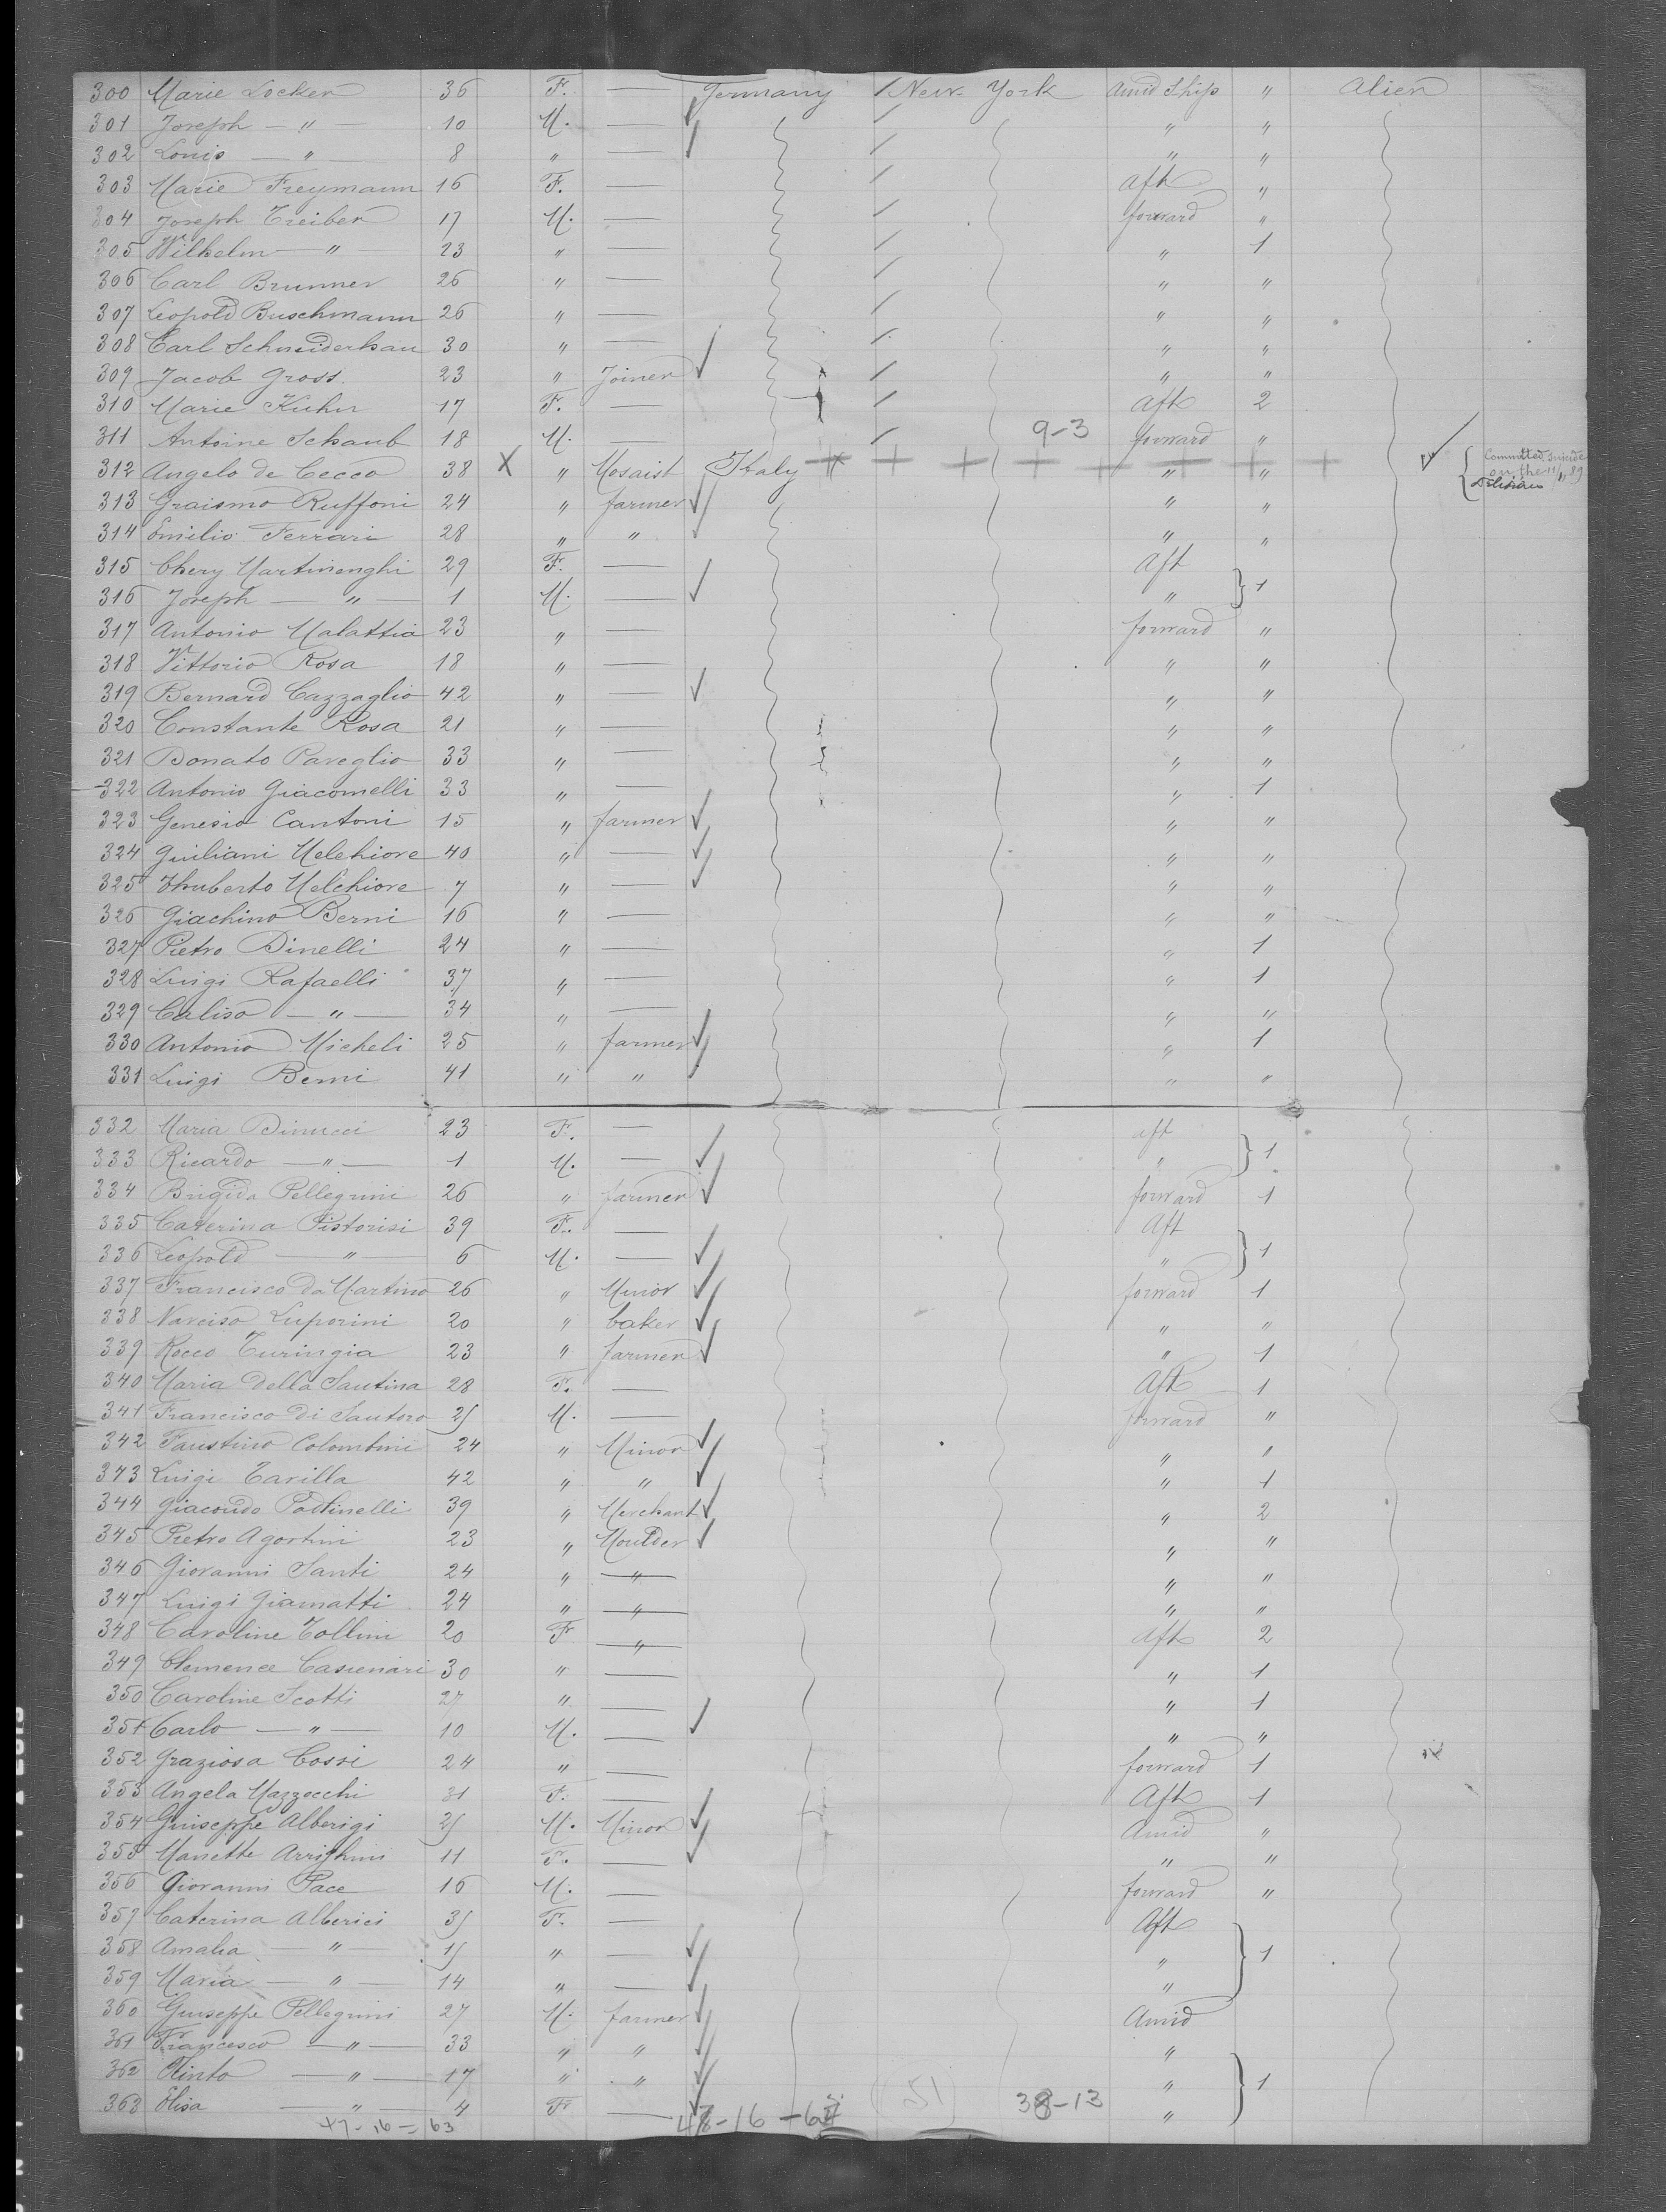 300 Marie Locker 36 F. — Germany New York Amid Ship " Alien
301 Joseph — " — 10 M. — " "
302 Louis — " — 8 " — " "
303 Marie Freymann 16 F. — aft "
304 Joseph Treiber 17 M. — forward "
305 Wilhelm — " — 23 " — " 1
306 Carl Brunner 26 " — " "
307 Leopold Buschmann 26 " — " "
308 Carl Schneiderhan 30 " — " "
309 Jacob Gross 23 " Joiner " "
310 Marie Kuhn 17 F. — Aft 2
311 Antoine Schaub 18 M. — 9-3 forward "
312 Angelo de Cecco 38 X " Mosaist Italy " " Committed suicide
on the 11/11 89
313 Graismo Ruffoni 24 " farmer " "
314 Emilio Ferrari 28 " " " "
315 Chery Martinenghi 29 F. — Aft
316 Joseph — " — 1 M. — " } 1
317 Antonio Malattia 23 " — forward "
318 Vittorio Rosa 18 " — " "
319 Bernard Cazzaglio 42 " — " "
320 Constante Rosa 21 " — " "
321 Donato Pareglio 33 " — " "
322 Antonio Giacomelli 33 " — " 1
323 Genesio Cantoni 15 " farmer " "
324 Guiliani Melchiore 40 " — " "
325 Thuberto Melchiore 7 " — " "
326 Giachino Berni 16 " — " "
327 Pietro Dinelli 24 " — " 1
328 Luigi Rafaelli 37 " — " 1
329 Caliso — " — 34 " — " "
330 Antonio Micheli 25 " farmer " 1
331 Luigi Berni 41 " " " "
332 Maria Dinucci 23 F. — aft
333 Ricardo — " — 1 M. — " } 1
334 Brigida Pellegrini 26 " farmer forward 1
335 Caterina Pistorisi 39 F. — Aft
336 Leopold — " — 6 M. — " } 1
337 Francisco da Martino 26 " Minor forward 1
338 Narciso Luporini 20 " baker " "
339 Rocco Turingia 23 " farmer " 1
340 Maria della Santina 28 F. — Aft 1
341 Francisco di Santoro 25 M. — forward "
342 Faustino Colombini 24 " Minor " "
343 Luigi Tarilla 42 " " " 1
344 Giacondo Poltinelli 39 " Merchant " 2
345 Pietro Agortini 23 " Moulder " "
346 Giovanni Santi 24 " " " "
347 Luigi Giamatti 24 " " " "
348 Caroline Tollini 20 F " Aft 2
349 Clemence Cascinari 30 " — " 1
350 Caroline Scotti 27 " — " 1
351 Carlo — " — 10 M. — " "
352 Graziosa Cossi 24 " — forward 1
353 Angela Mazzocchi 31 F. — Aft 1
354 Guiseppe Alberigi 25 M. Minor Amid "
355 Manette Arrighini 11 F. — " "
356 Giovanni Pace 16 M. — forward "
357 Caterina Alberici 35 F. — Aft
358 Amalia — " — 15 " — " } 1
359 Maria — " — 14 " — "
360 Giuseppe Pellegrini 27 M. farmer Amid
361 Francesco — " — 33 " " "
362 Olinto — " — 17 " " " } 1
363 Elisa — " — 4 F — "
47-16=63 48-16-64 (51) 38-13